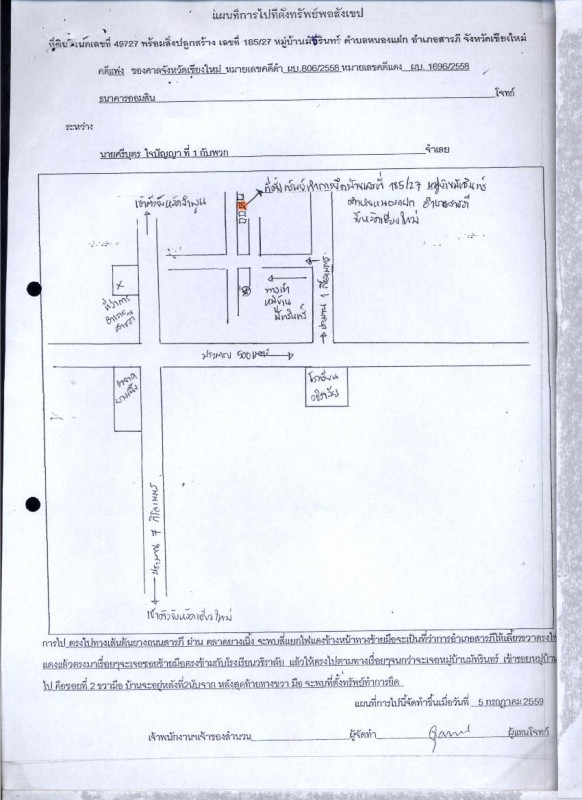 แผนที่การไปที่ตั้งทรัพย์พอสังเขป
ที่ดินโฉนดเลขที่ 49727 พร้อมสิ่งปลูกสร้าง เลขที่ 185/27 หมู่บ้านมัชรินทร์ ตำบลหนองแฝก อำเภอสารภี จังหวัดเชียงใหม่
คดีแพ่ง ของศาลจังหวัดเชียงใหม่ หมายเลขคดีดำ ผบ.806/2558 หมายเลขคดีแดง ผบ. 1696/2558
ธนาคารออมสิน โจทก์
ระหว่าง
นายศรีบุตร ใจปัญญา ที่ 1 กับพวก จำเลย
ที่ตั้งทรัพย์ทำการยึดบ้านเลขที่ 185/27 หมู่บ้านมัชรินทร์
ตำบลหนองแฝก อำเภอสารภี
จังหวัดเชียงใหม่
เข้าตัวจังหวัดลำพูน
X
ที่ว่าการ
อำเภอ
สารภี
ทางเข้า
หมู่บ้าน
มัชรินทร์
ประมาณ 1 กิโลเมตร
ประมาณ 500 เมตร
ตลาด
ยางเนิ้ง
โรงเรียน
วชิราลัย
ประมาณ 7 กิโลเมตร
เข้าตัวจังหวัดเชียงใหม่
การไป ตรงไปทางเส้นต้นยางถนนสารภี ผ่าน ตลาดยางเนิ้ง จะพบสี่แยกไฟแดงข้างหน้าทางซ้ายมือจะเป็นที่ว่าการอำเภอสารภีให้เลี้ยวขวาตรงไฟ
แดงแล้วตรงมาเรื่อยๆจะเจอซอยซ้ายมือตรงข้ามกับโรงเรียนวชิราลัย แล้วให้ตรงไปตามทางเรื่อยๆจนกว่าจะเจอหมู่บ้านมัทรินทร์ เข้าซอยหมู่บ้าน
ไป คือซอยที่ 2 ขวามือ บ้านจะอยู่หลังที่2นับจาก หลังสุดท้ายทางขวา มือ จะพบที่ตั้งทรัพย์ทำการยึด
แผนที่การไปนี้จัดทำขึ้นเมื่อวันที่ 5 กรกฎาคม 2559
เจ้าพนักงานฯเจ้าของสำนวน ผู้จัดทำ ผู้แทนโจทก์